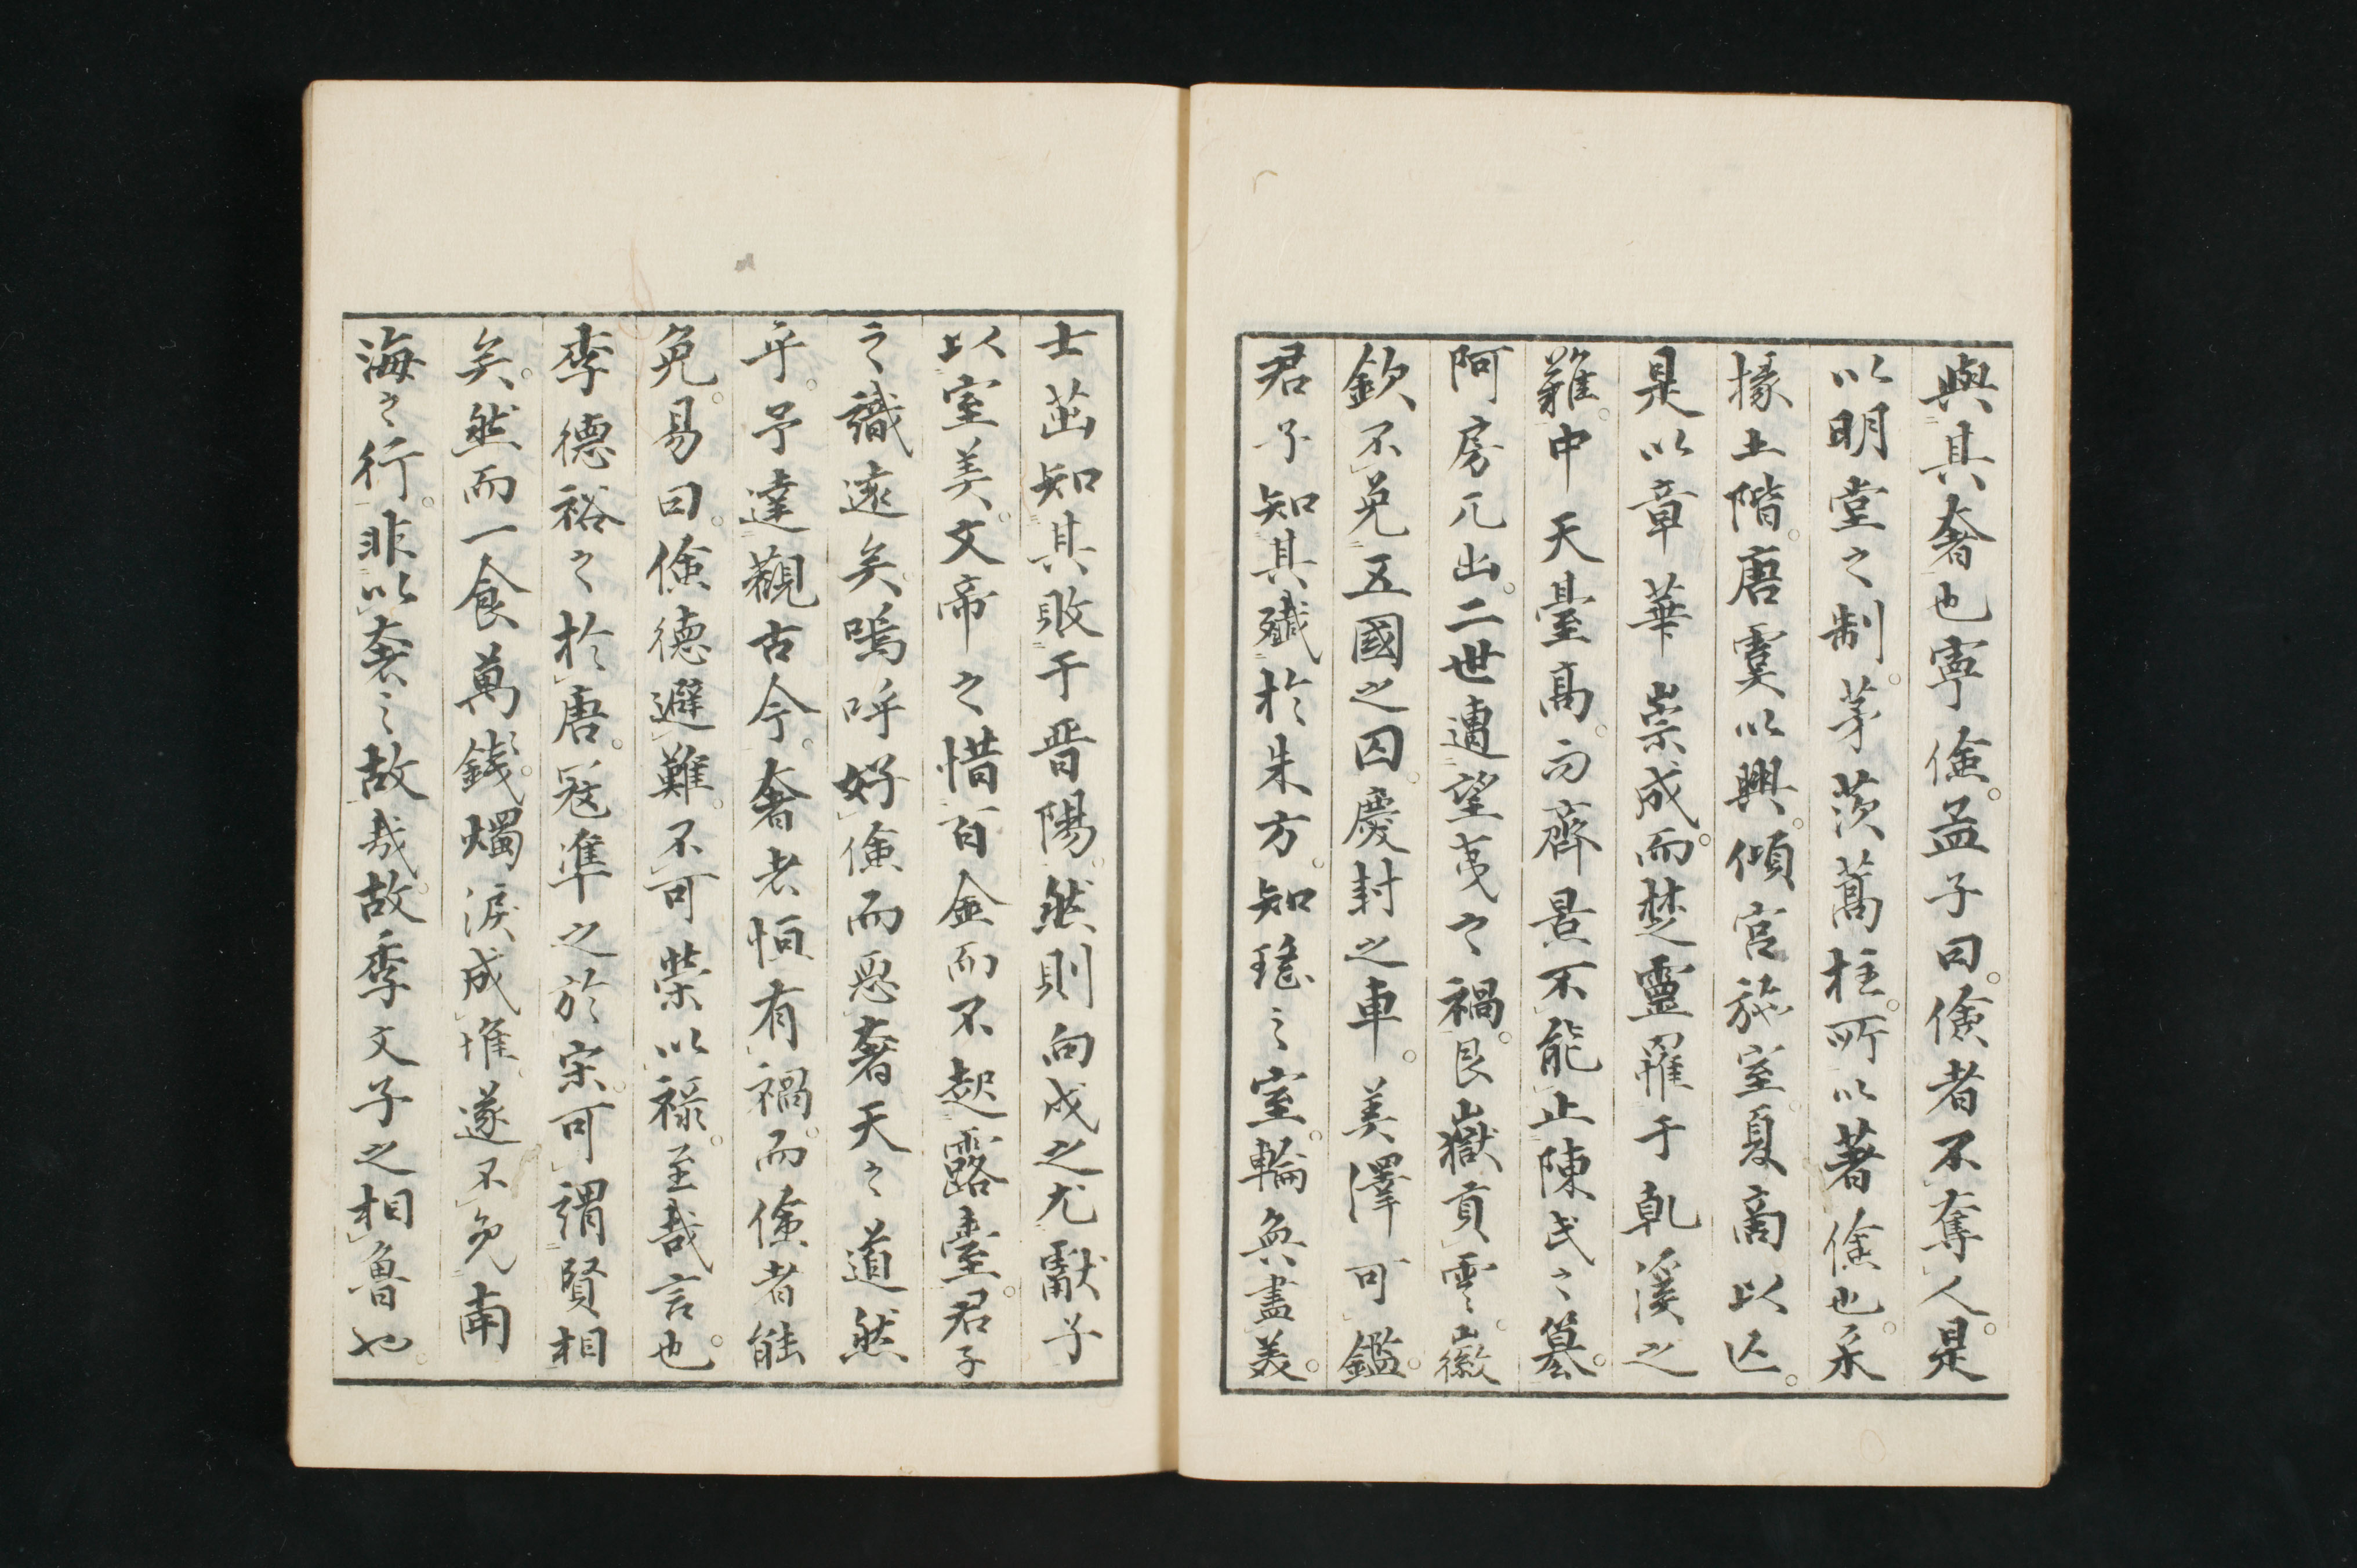 與其奢也寧儉。孟子曰。儉者不奪人。是
以明堂之制。茅茨蒿柱。所以著儉也。采
椽土階。唐虞以興。傾宮旋室。夏商以亾。
是以章華崇成。而楚靈罹于乹溪之
難。中天臺高。而齊景不能止陳氏之簒。
阿房兀出。二世遭望夷之禍。艮嶽貢雲。徽
欽不免五國之囚。慶封之車。美澤可鑑。
君子知其殲於朱方。知瑤之室。輪奐盡美。
士茁知其敗于晋陽。然則向戍之尤獻子
以室美。文帝之惜百金而不起露臺。君子
之識遠矣。嗚呼好儉而惡奢天之道然
乎。予達觀古今。奢者恒有禍。而儉者能
免。易曰。儉德避難。不可榮以祿。至哉言也。
李德裕之於唐。寇準之於宋。可謂賢相
矣。然而一食萬錢。燭淚成堆。遂不免南
海之行。非以奢之故哉。故季文子之相魯也。